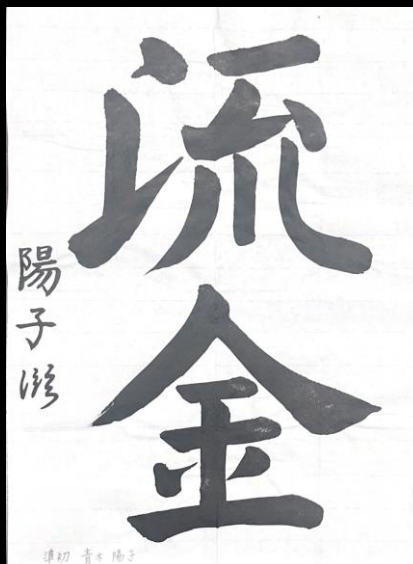 流金
陽子
準初 青木 陽子